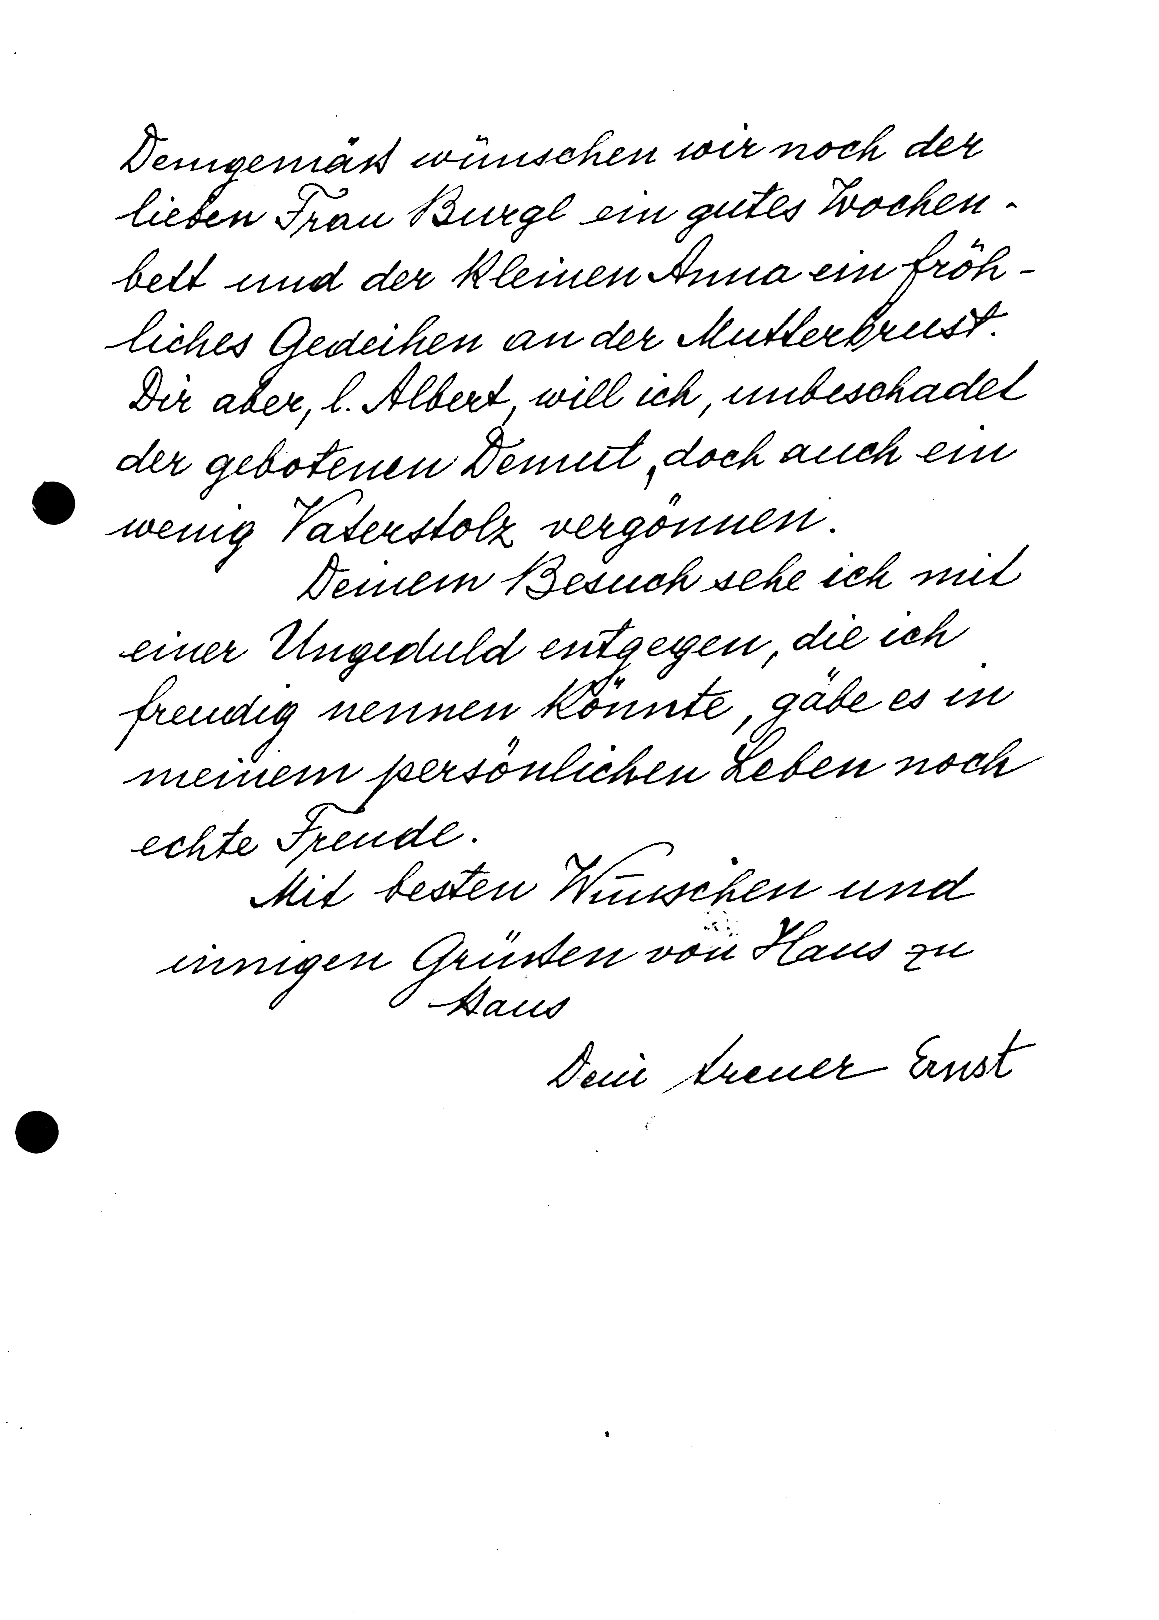 Demgemäß wünschen wir noch der
lieben Frau Burgl ein gutes Wochen-
bett und der kleinen Anna ein fröh-
liches Gedeihen an der Mutterbrust.
Dir aber, l. Albert, will ich, unbeschadet
der gebotenen Demut, doch auch ein
wenig Vaterstolz vergönnen.
Deinem Besuch sehe ich mit
einer Ungeduld entgegen, die ich
freudig nennen könnte, gäbe es in
meinem persönlichen Leben noch
echte Freude.
Mit besten Wünschen und
innigen Grüßen von Haus zu
Haus
Dein treuer Ernst